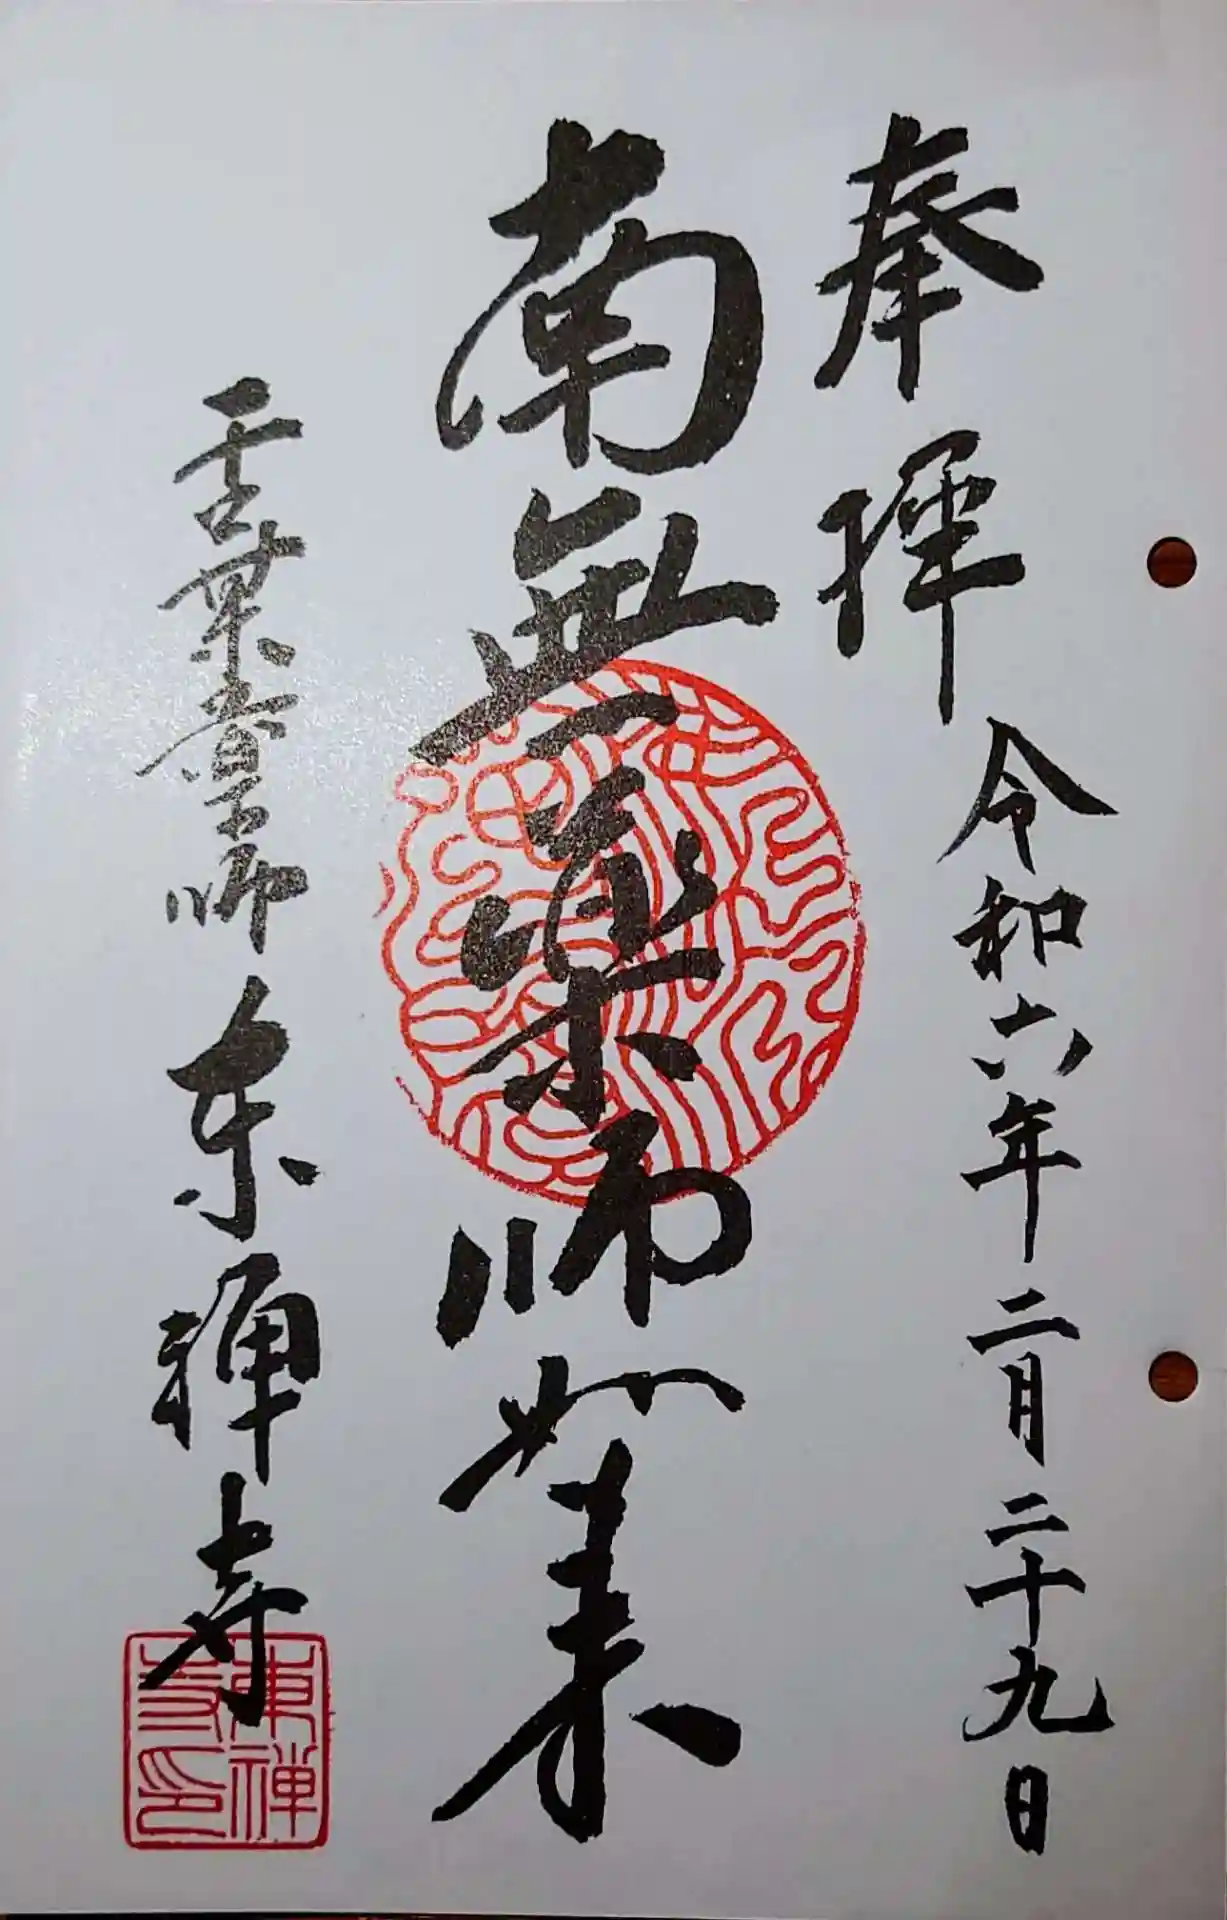 奉拝
令和六年二月二十九日
南無薬師如来
東禅寺
東禅寺印